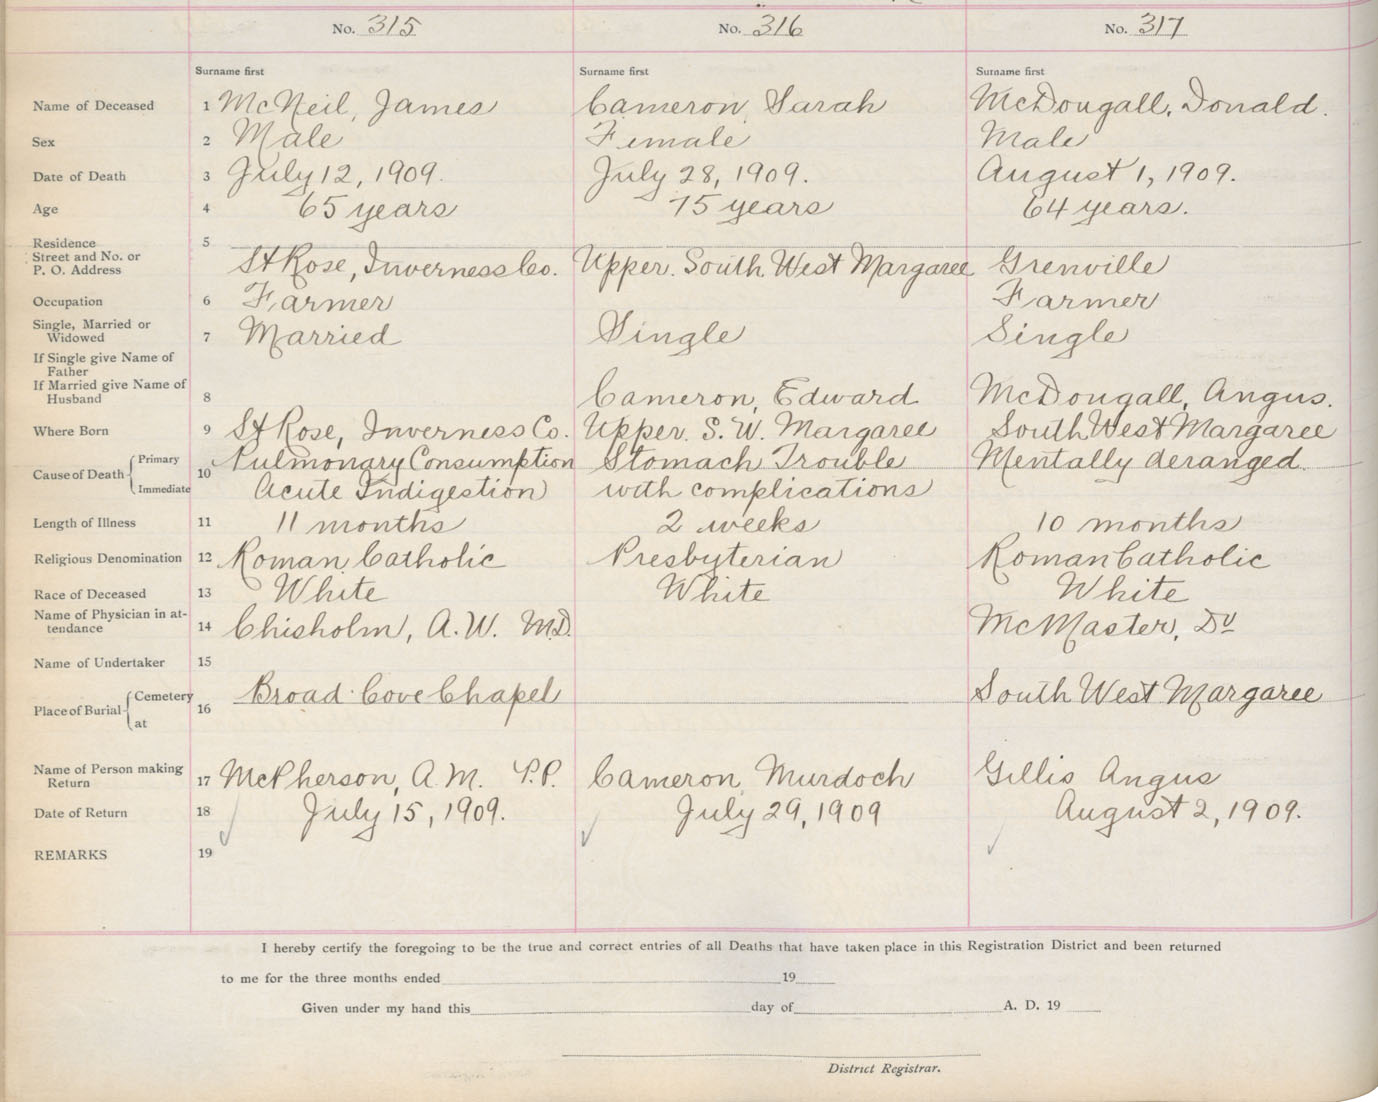 No. 315 No. 316 No. 317
Surname first Surname first Surname first
Name of Deceased 1 McNeil, James Cameron, Sarah McDougall, Donald.
Sex 2 Male Female Male
Date of Death 3 July 12, 1909. July 28, 1909. August 1, 1909.
Age 4 65 years 75 years 64 years.
Residence 5
Street and No. or
P. O. Address St Rose, Inverness Co. Upper. South. West Margaree Grenville
Occupation 6 Farmer Farmer
Single, Married or
Widowed 7 Married Single Single
If Single give Name of
Father
If Married give Name of
Husband 8 Cameron, Edward McDougall, Angus.
Where Born 9 St Rose, Inverness Co. Upper. S. W. Margaree South West Margaree
Cause of Death 10 Primary Pulmonary Consumption Stomach Trouble Mentally deranged.
Immediate Acute Indigestion with complications
Length of Illness 11 11 months 2 weeks 10 months
Religious Denomination 12 Roman Catholic Presbyterian Roman Catholic
Race of Deceased 13 White White White
Name of Physician in at-
tendance 14 Chisholm, A. W. M.D. McMaster, Dr
Name of Undertaker 15
Place of Burial 16 Cemetery Broad Cove Chapel South West Margaree
at
Name of Person making
Return 17 McPherson, A. M. P.P. Cameron, Murdoch Gillis Angus
Date of Return 18 July 15, 1909. July 29, 1909 August 2, 1909.
REMARKS 19
I hereby certify the foregoing to be the true and correct entries of all Deaths that have taken place in this Registration District and been returned
to me for the three months ended 19
Given under my hand this day of A. D. 19
District Registrar.